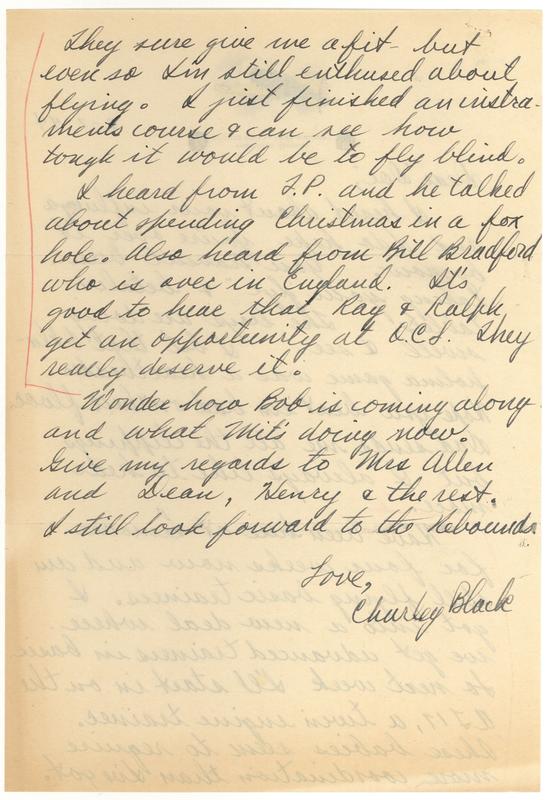 They sure give me a fit - but
even so I'm still enthused about
flying. I just finished an instra-
ments course & can see how
tough it would be to fly blind.
I heard from T.P. and he talked
about spending Christmas in a fox
hole. Also heard from Bill Bradford
who is over in England. It's
good to hear that Ray & Ralph
get an opportunity at O.C.S. They
really deserve it.
Wonder how Bob is coming along
and what Mit's doing now.
Give my regards to Mrs Allen
and Dean, Henry & the rest.
I still look forward to the Rebounds.
Love,
Charley Black